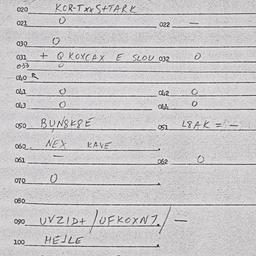 020 KCR-TXXS+TARK
021 0 022 -
030 0
031 + QKOXCAX E SLOU 032 0
033 0
040
041 0 042 0
043 0 044 0
050 BUNSKSE 051 L8AK = -
060 NEX KAVE
061 - 062 0
070 0
080
090 UVZID+/UFKOXN7./-
100 HEJLE